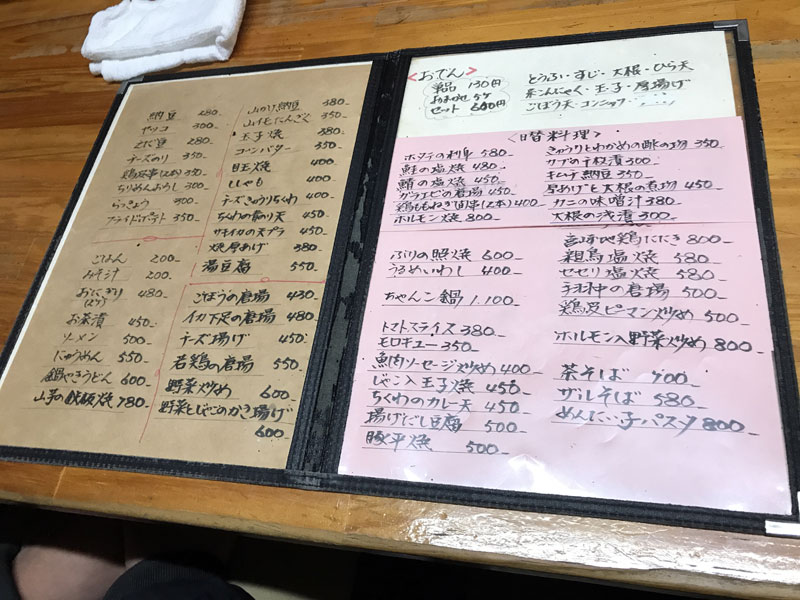 納豆 280
ヤッコ 300
もずく 280
チーズのり 350
ちりめんおろし 300
らっきょう 300
フライドポテト 350
ごはん 200
みそ汁 200
おにぎり(2ケ) 480
お茶漬 450
ソーメン 500
にゅうめん 550
鍋やきうどん 600
山芋の鉄板焼 780
山かけ納豆 380
山イモたんざく 350
玉子焼 380
コーンバター 350
目玉焼 400
ししゃも 400
チーズきゅうりちくわ 400
ちくわの磯の天 450
サキイカの天プラ 450
焼厚あげ 380
湯豆腐 550
ごぼうの唐揚 430
イカ下足の唐揚 480
チーズ揚げ 450
若鶏の唐揚 550
野菜炒め 600
野菜とじゃこのかき揚げ 600
<おでん>
単品 130円
おまかせ 5ケ
セット 600円
とうふ・すじ・大根・ひら天
糸こんにゃく・玉子・厚揚げ
ごぼう天・コンニャク
<日替料理>
ホタテの刺身 580
鮭の塩焼 480
鯖の塩焼 450
ガラエビの唐揚 450
鶏ももねぎ間串(2本) 400
ホルモン焼 800
ぶりの照焼 600
うるめいわし 400
ちゃんこ鍋 1.100
トマトスライス 380
モロキュー 350
魚肉ソーセージ炒め 400
じゃこ入玉子焼 450
ちくわのカレー天 450
揚げだし豆腐 500
豚平焼 500
きゅうりとわかめの酢の物 350
キムチ納豆 350
厚あげと大根の煮物 450
カニの味噌汁 380
大根の浅漬 300
宮崎地鶏たたき 800
親鳥塩焼 580
セセリ塩焼 580
手羽中の唐揚 500
鶏皮ピーマン炒め 500
ホルモン入野菜炒め 800
茶そば 700
ザルそば 580
めんたい子パスタ 800